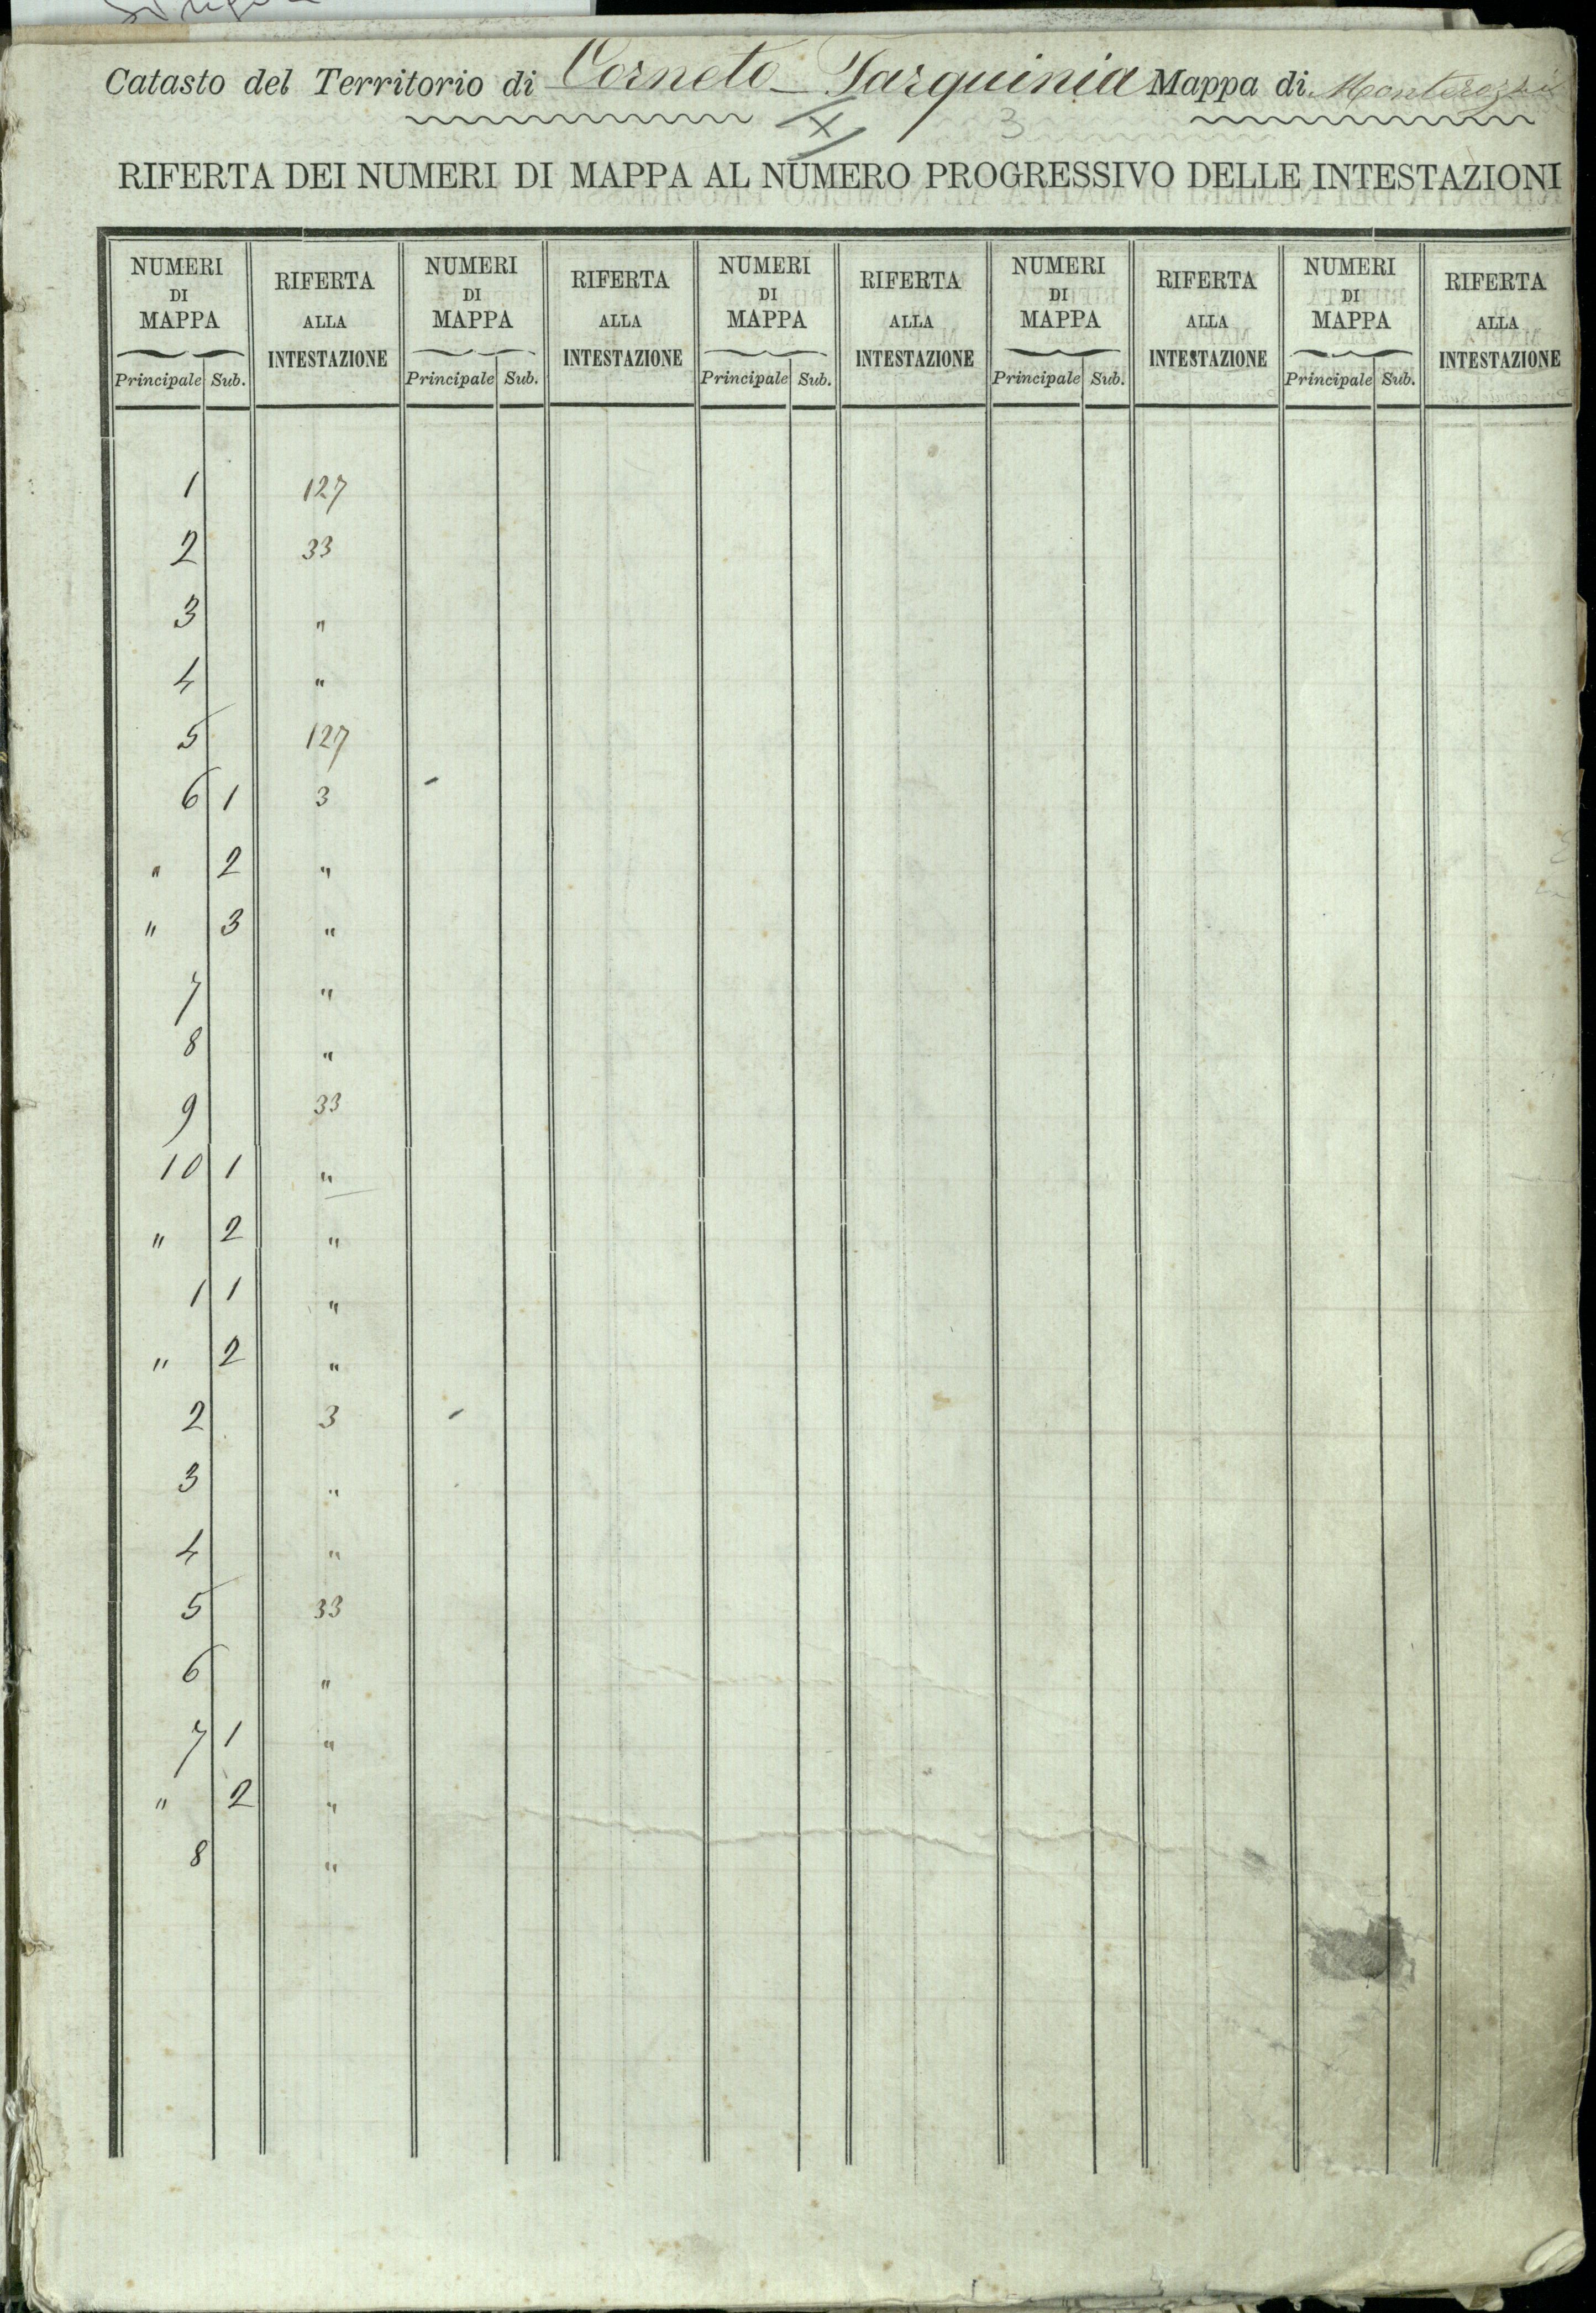 Catasto del Territorio di Corneto Tarquinia Mappa di Monterozzi
X 3
RIFERTA DEI NUMERI DI MAPPA AL NUMERO PROGRESSIVO DELLE INTESTAZIONI
NUMERI DI MAPPA RIFERTA ALLA INTESTAZIONE NUMERI DI MAPPA RIFERTA ALLA INTESTAZIONE NUMERI DI MAPPA RIFERTA ALLA INTESTAZIONE NUMERI DI MAPPA RIFERTA ALLA INTESTAZIONE NUMERI DI MAPPA RIFERTA ALLA INTESTAZIONE
Principale Sub. Principale Sub. Principale Sub. Principale Sub. Principale Sub.
1 127
2 33
3 "
4 "
5 127
6 1 3
" 2 "
" 3 "
7 "
8 "
9 33
10 1 "
" 2 "
1 1 "
" 2 "
2 3
3 "
4 "
5 33
6 "
7 1 "
" 2 "
8 "